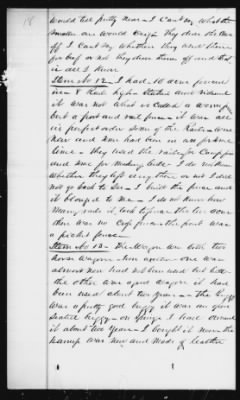 18
would tell pretty near - I can't say what the
smaller one would weigh They drove the cow
off I can't say whether they used them
for beef or not they drove them off and that
is all I know
Item No 12 - I had 10 acres fenced
in - 8 rails high staked and ridered
it was not what is called a worm
but a post and rail fence - it was all
in perfect order some of the Rails were
new and some had been in use for some
time - they used the rails for
and some for making beds - I do not know
whether they left any there or not I did
not go back to see - I built the fence and
it belonged to me - I do not know how
Many rails it took to fence the ten acres
there was no fence - the front was
a picket fence -
Item No 13 - The Wagon was both two
horse wagons - iron axles - one was
almost new had not been used but little
the other was a good wagon it had
been used about two years - the buggy
was a pretty good buggy it was an open
seated buggy - on springs I have owned
it about two years - I bought it new - the
harness was new and made of leather